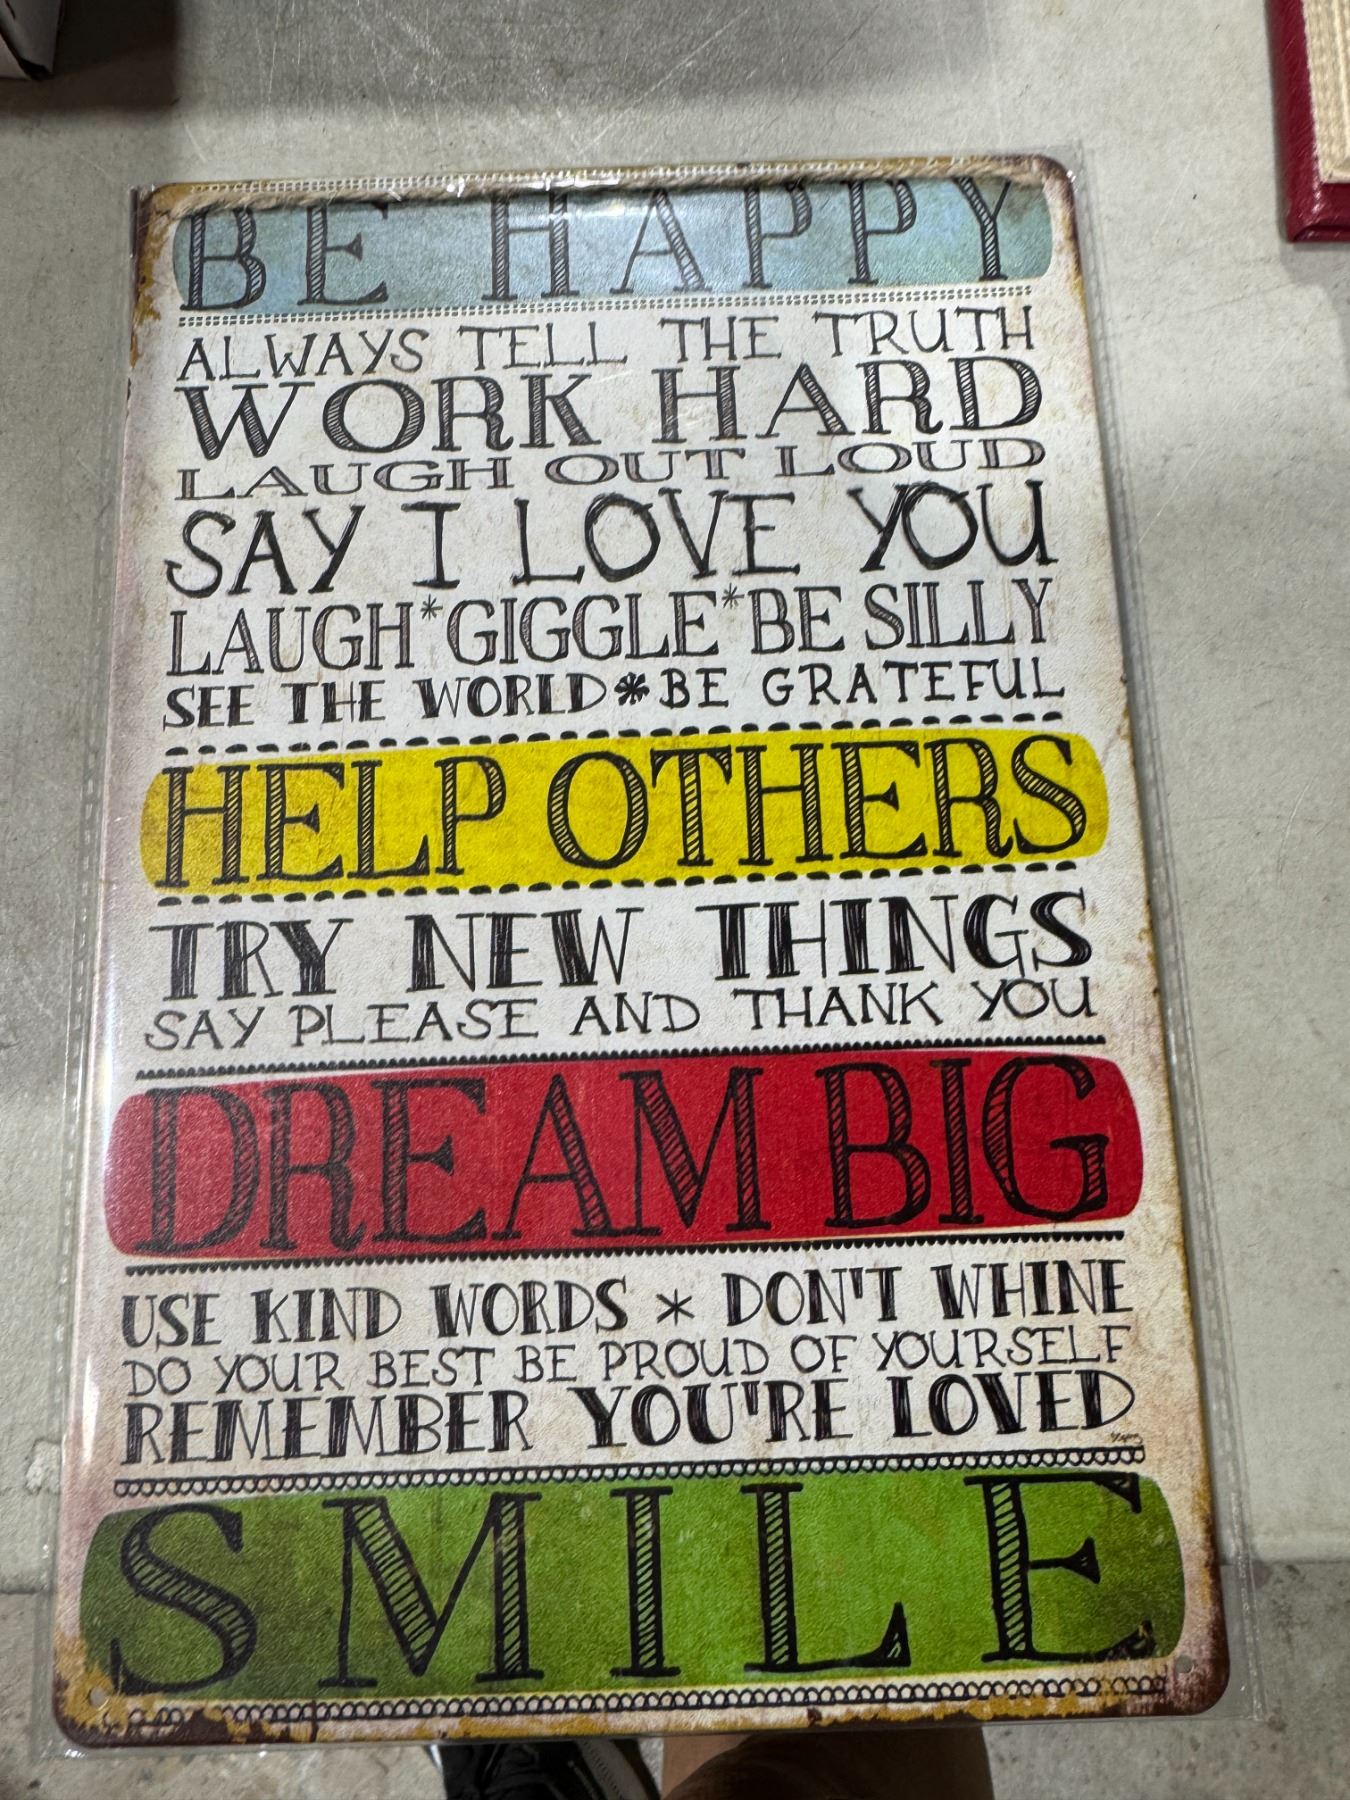 BE HAPPY
ALWAYS TELL THE TRUTH
WORK HARD
LAUGH OUT LOUD
SAY I LOVE YOU
LAUGH*GIGGLE*BE SILLY
SEE THE WORLD*BE GRATEFUL
HELP OTHERS
TRY NEW THINGS
SAY PLEASE AND THANK YOU
DREAM BIG
USE KIND WORDS * DON'T WHINE
DO YOUR BEST BE PROUD OF YOURSELF
REMEMBER YOU'RE LOVED
SMILE